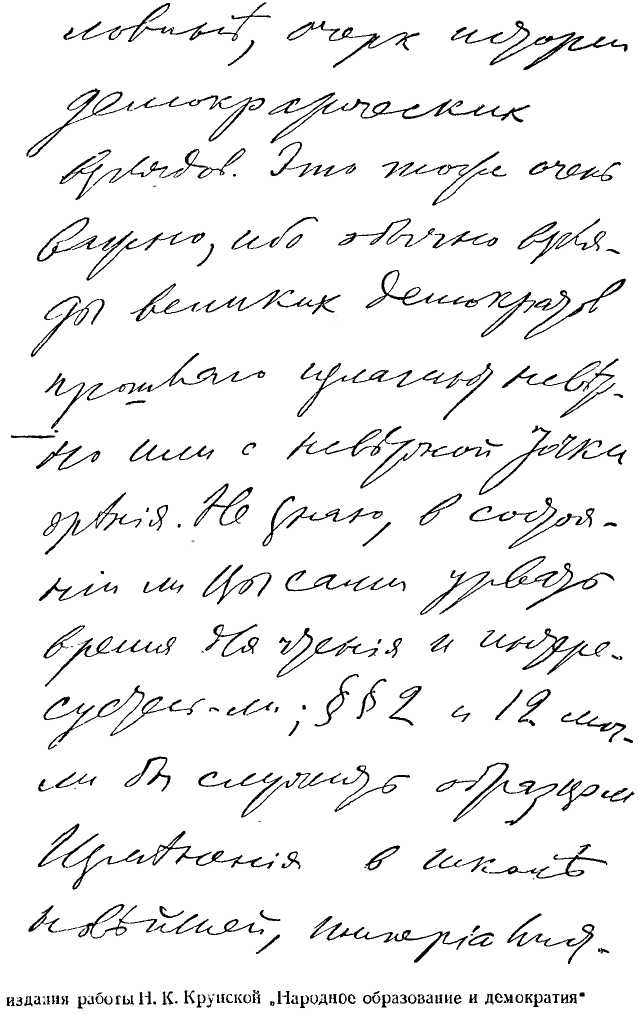 ловный, очерк истории
демократических
взглядов. Это тоже очень
важно, ибо обычно взгля-
ды великих демократов
прошлаго излагают невѣр-
но или с невѣрной точки
зрѣнія. Не знаю, в состоя-
ніи ли Вы сами урвать
время для чтенія и интере-
суетесь-ли; §§ 2 и 12 мог-
ли бы служить образцом
Измѣненія в школѣ
новѣйшей, имперіалист-
издания работы Н. К. Крупской „Народное образование и демократия“